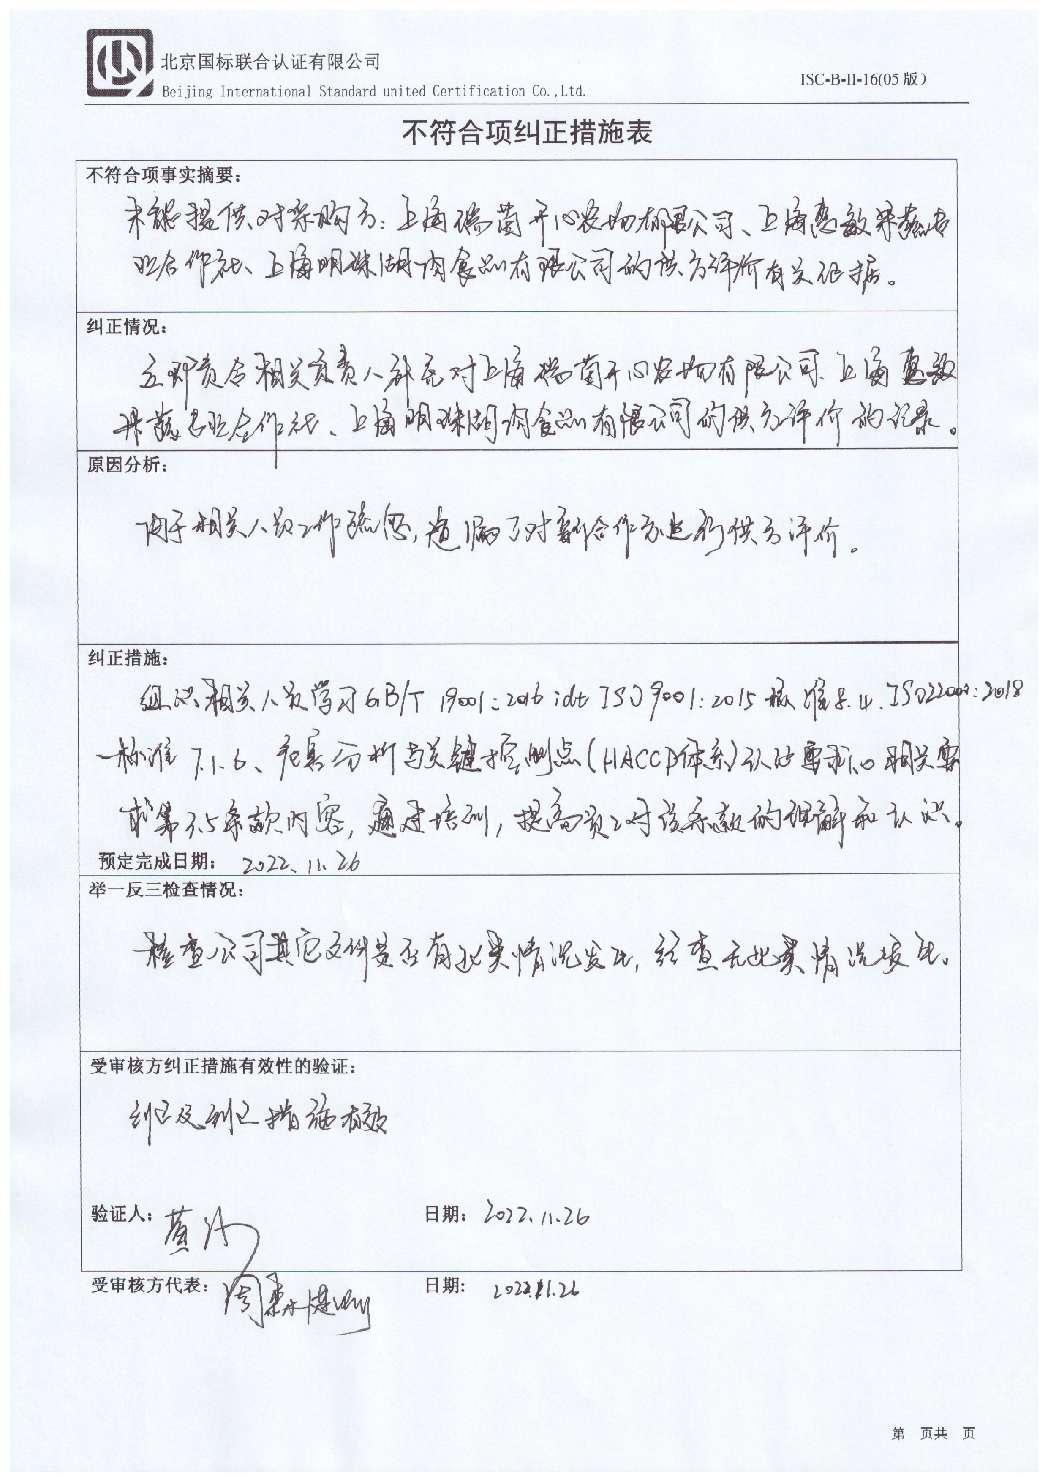 北京国标联合认证有限公司
Beijing International Standard united Certification Co.,Ltd.
ISC-B-II-16(05 版)
不符合项纠正措施表
不符合项事实摘要:
未能提供对采购方:上海 菌开心农场有限公司、上海惠敏果蔬专
业合作社、上海明珠湖肉食品有限公司的供方评价有关证据。
纠正情况:
立即责令相关负责人补充对上海 菌开心农场有限公司、上海惠敏
果蔬专业合作社、上海明珠湖肉食品有限公司的供方评价的记录。
原因分析:
由于相关人员工作疏忽,遗漏了对新合作方进行供方评价。
纠正措施:
组织相关人员学习GB/T 19001:2016 idt ISO 9001:2015 标准8.4、ISO22000:2018
标准 7.1.6、危害分析与关键控制点(HACCP体系)认证要求 相关要
求第3.5条款内容,通过培训,提高员工对该条款的理解和认识。
预定完成日期: 2022.11.26
举一反三检查情况:
检查公司其它文件是否有此类情况发生,经查无此类情况发生。
受审核方纠正措施有效性的验证:
纠正及纠正措施有效
验证人: 黄 日期: 2022.11.26
受审核方代表: 周 日期: 2022.11.26
第 页共 页